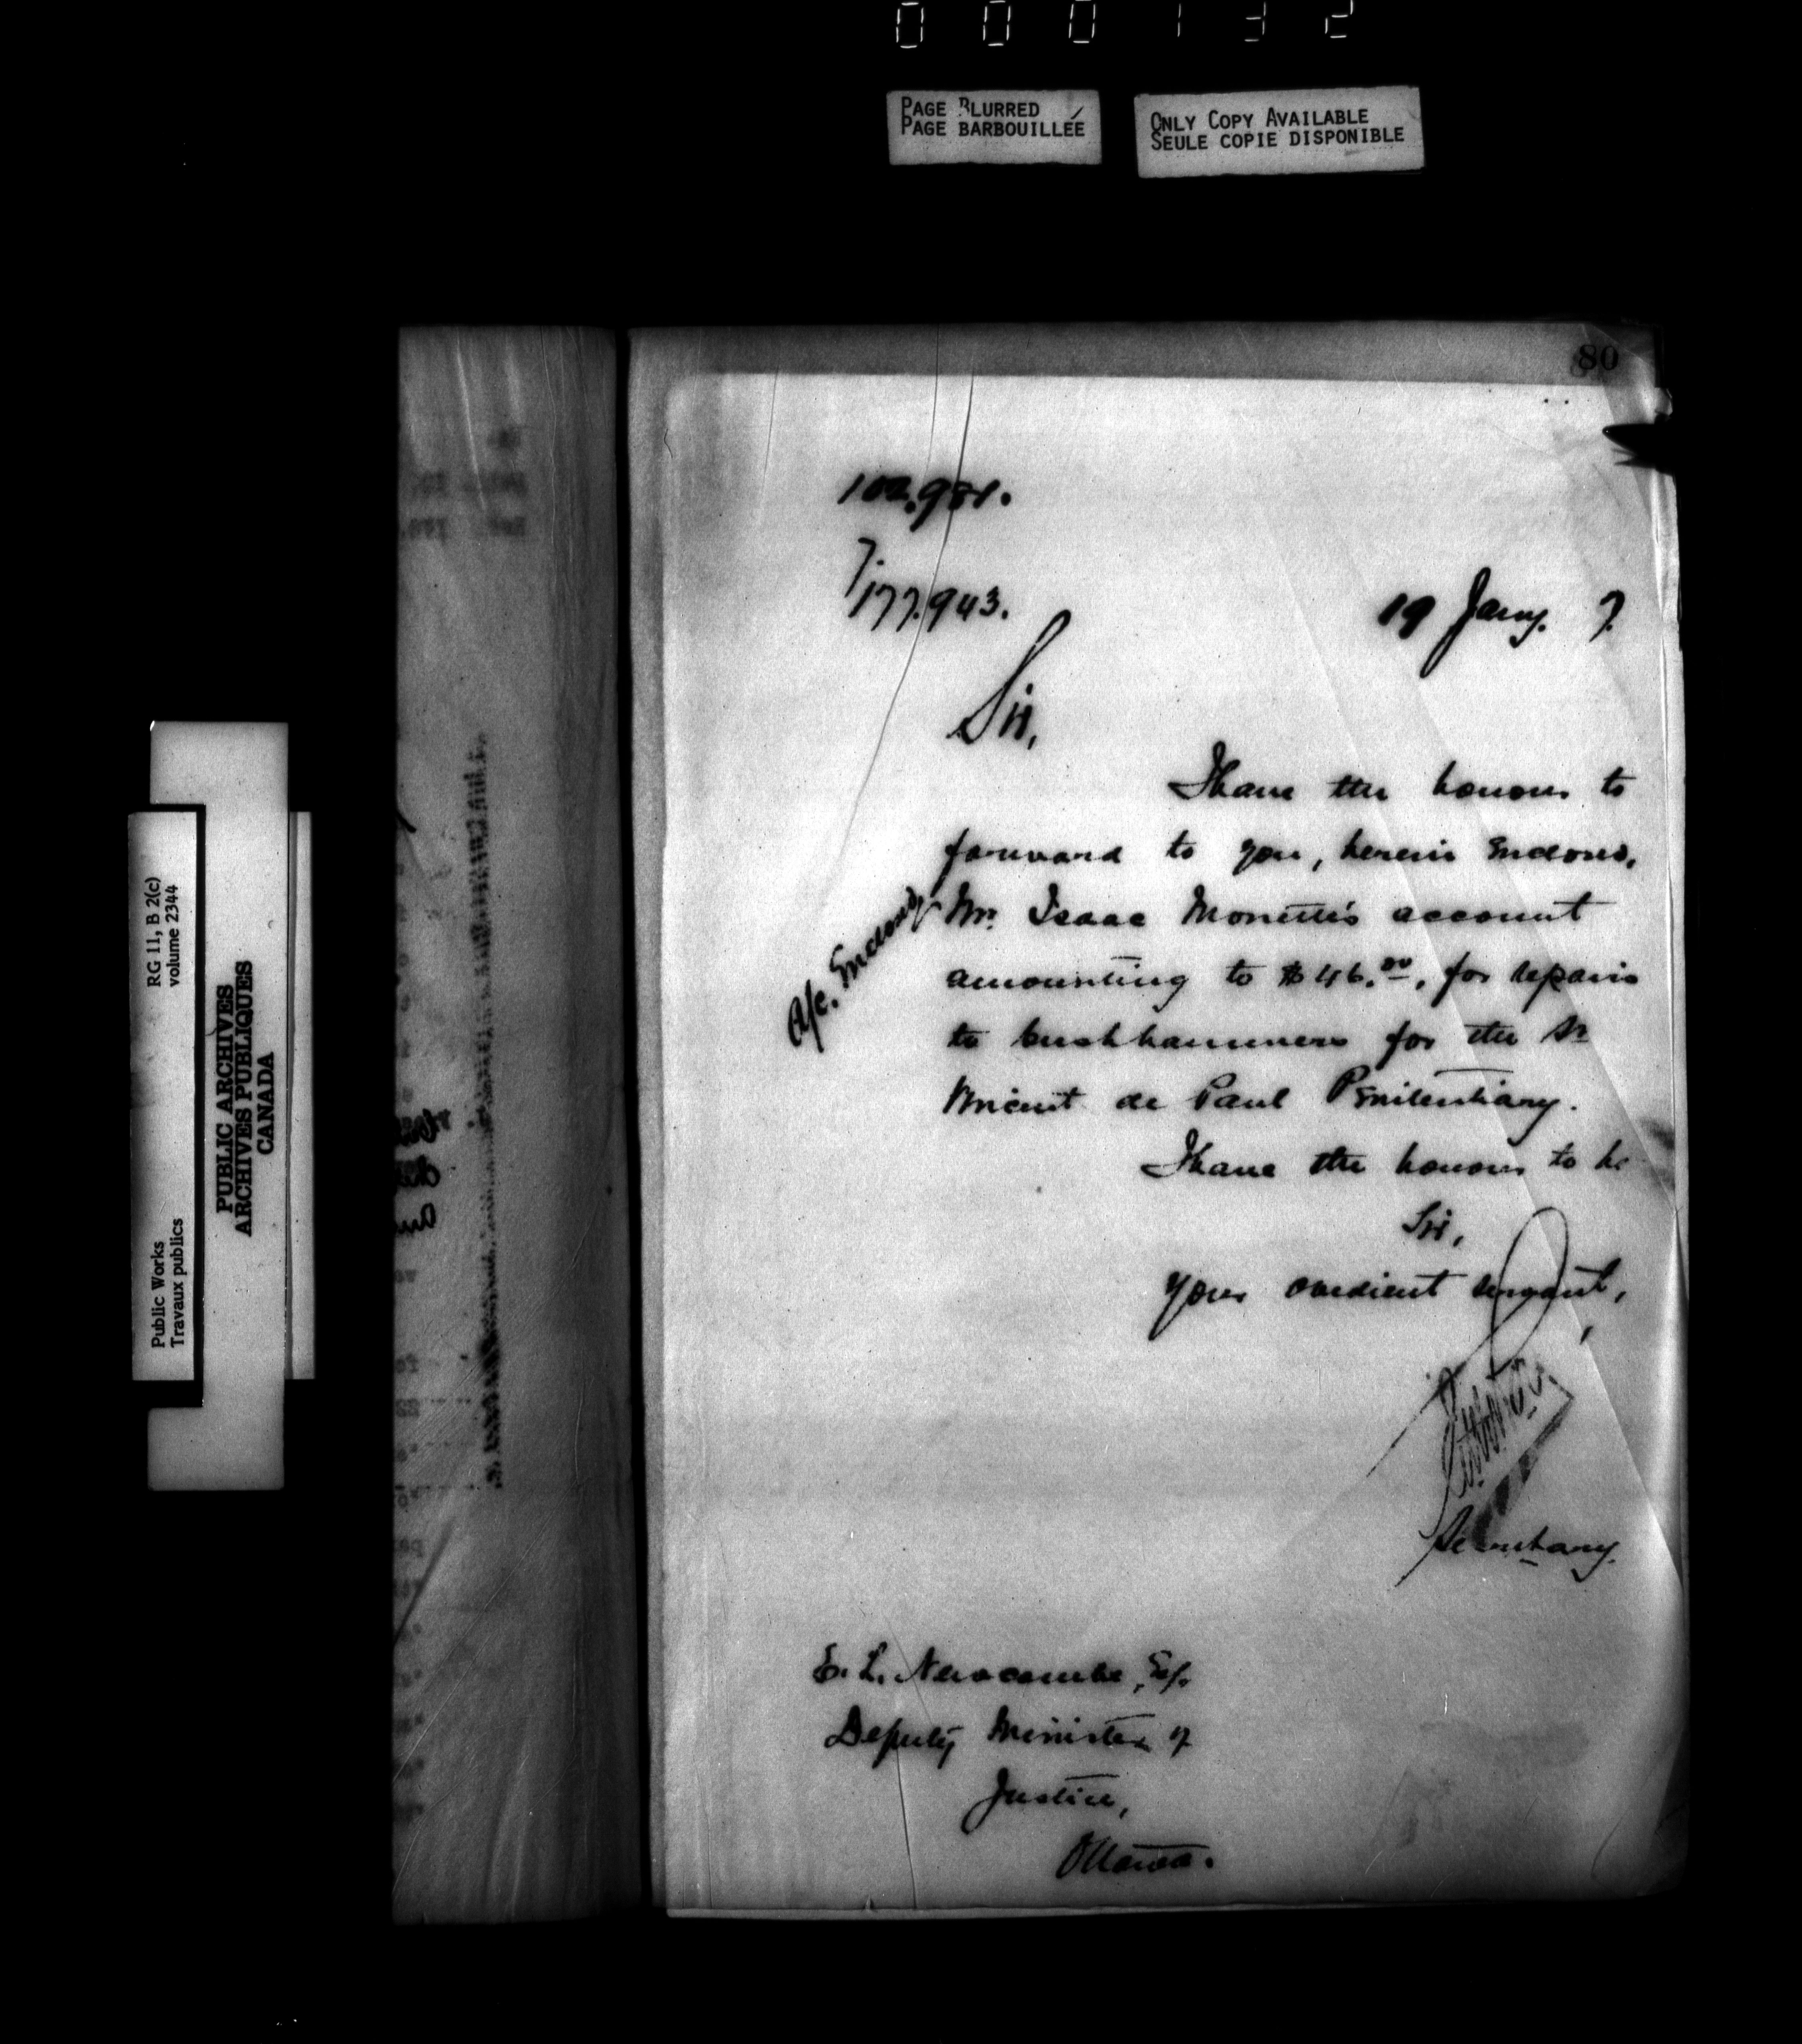 000132
PAGE BLURRED
PAGE BARBOUILLÉE
ONLY COPY AVAILABLE
SEULE COPIE DISPONIBLE
RG 11, B 2(c)
volume 2344
Public Works
Travaux publics
PUBLIC ARCHIVES
ARCHIVES PUBLIQUES
CANADA
80
102.981.
7/177.943.
19 Jany. 7.
Sir,
I have the honour to
forward to you, herein enclosed,
A/c. Enclosed
Mr. Isaac Monette's account
amounting to $46.00, for repairs
to bushhammers for the St
Vincent de Paul Penitentiary.
I have the honour to be
Sir,
Your obedient servant,
Secretary.
E. L. Newcombe, Esq.
Deputy Minister of
Justice,
Ottawa.